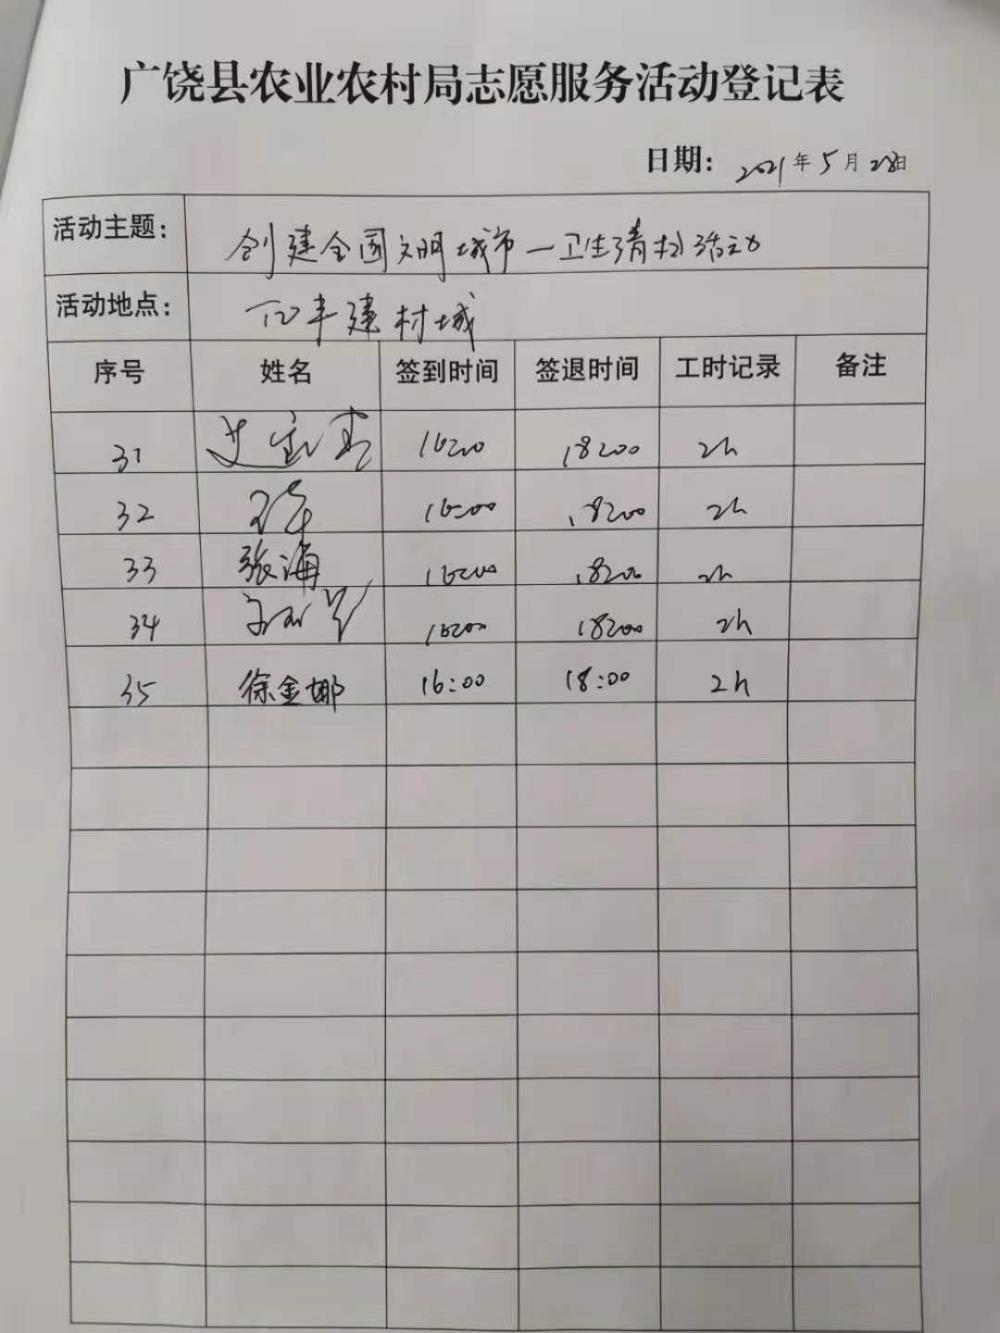 广饶县农业农村局志愿服务活动登记表
日期: 2021年5月28日
活动主题: 创建全国文明城市一卫生清扫活动
活动地点: 亿丰建材城
序号 姓名 签到时间 签退时间 工时记录 备注
31 16:00 18:00 2h
32 16:00 18:00 2h
33 张海 16:00 18:00 2h
34 16:00 18:00 2h
35 徐金娜 16:00 18:00 2h